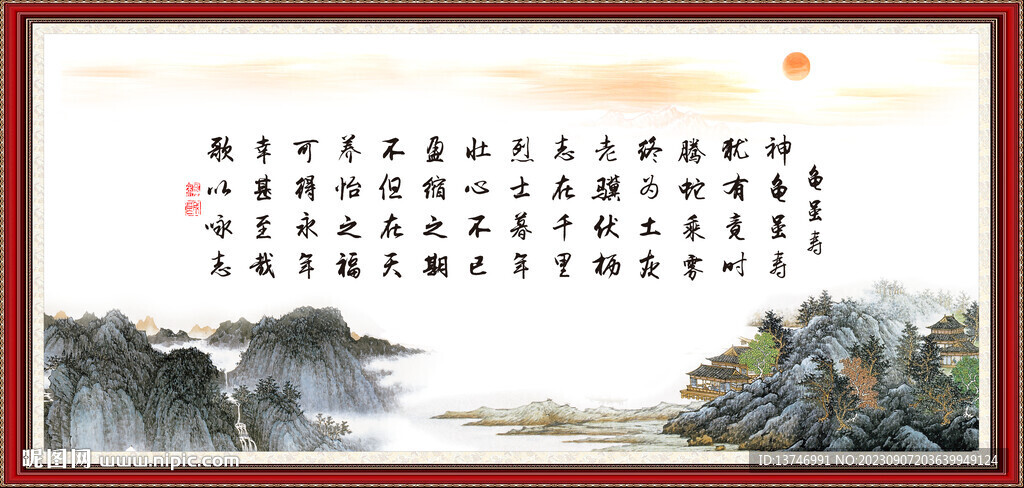 龟虽寿
神龟虽寿
犹有竟时
腾蛇乘雾
终为土灰
老骥伏枥
志在千里
烈士暮年
壮心不已
盈缩之期
不但在天
养怡之福
可得永年
幸甚至哉
歌以咏志
昵图网 www.nipic.com
ID:13746991 NO:20230907203639949124